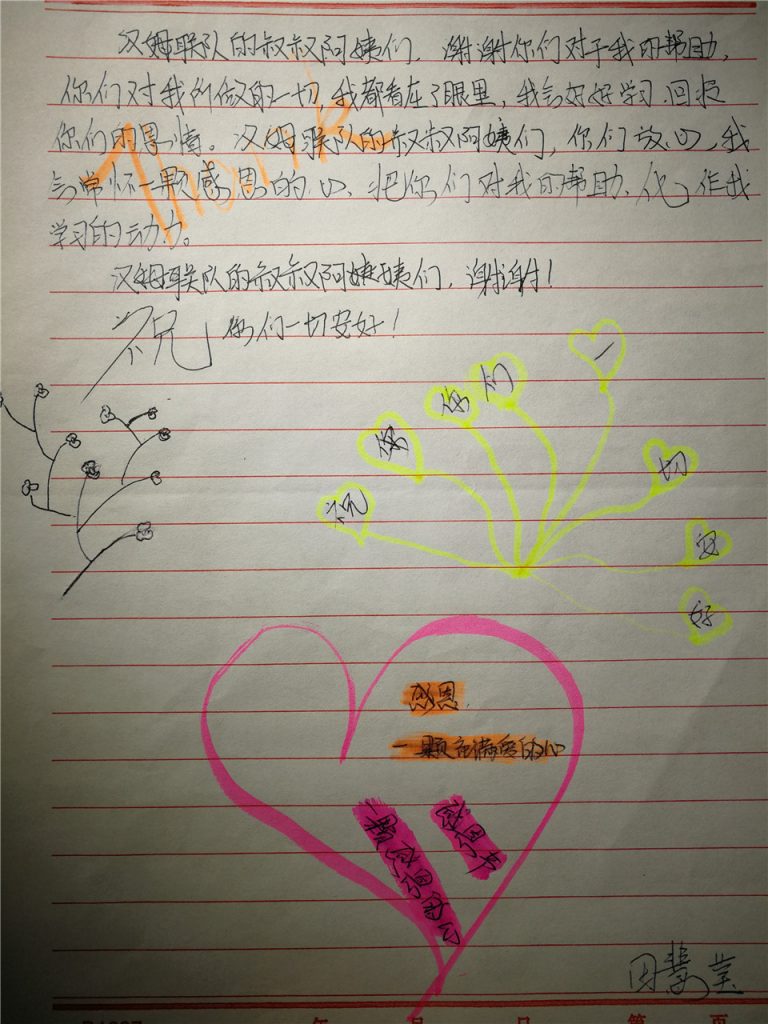 汉姆联队的叔叔阿姨们，谢谢你们对于我的帮助，
你们对我所做的一切，我都看在了眼里，我会好好学习，回报
你们的恩情。汉姆联队的叔叔阿姨们，你们放心，我
会常怀一颗感恩的心，把你们对我的帮助，化作我
学习的动力。
汉姆联队的叔叔阿姨姨们，谢谢！
祝你们一切安好！
Thank
祝
你
们
一
切
安
好
感恩.
一颗充满爱的心
感恩
一颗感恩的心
年 月 日 第 页